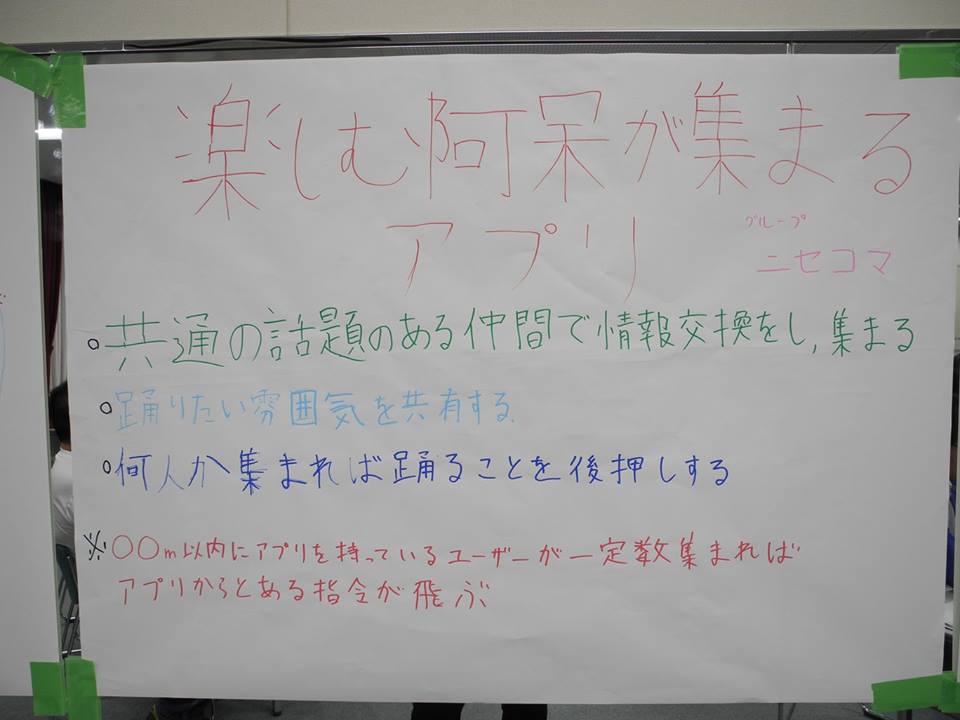 楽しむ阿呆が集まる
アプリ
グループ
ニセコマ
○共通の話題のある仲間で情報交換をし,集まる
○踊りたい雰囲気を共有する
○何人か集まれば踊ることを後押しする
※〇〇m以内にアプリを持っているユーザーが一定数集まれば
アプリからとある指令が飛ぶ